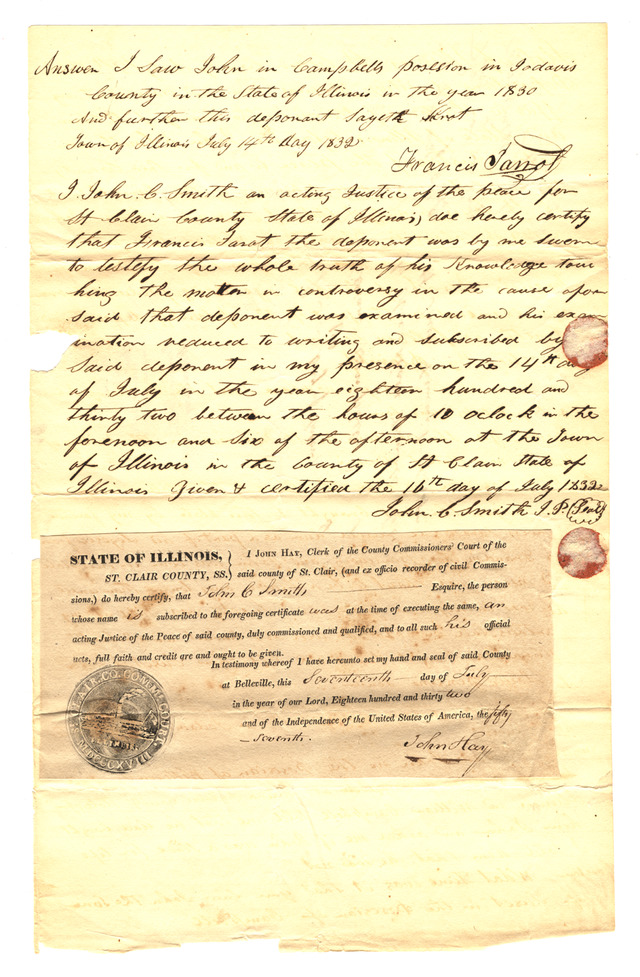 Answer I Saw John in Campbells posestion in Jodavis
County in the State of Illinois in the year 1830
And further this deponant Sayeth Not
Town of Illinois July 14th Day 1832
Francis Jarrot
I. John. C. Smith an acting Justice of the peace for
St Clair County State of Illinois, doe hereby certify
that Francis Jarot the deponent was by me sworn
to testefy the whole truth of his Knowledge touc
hing the matter in controversy in the cause afore
said that deponent was examined and his exam
ination reduced to writing and subscribed by
said deponent in my presence on the 14th day
of July in the year eighteen hundred and
thirty two between the hours of 10 oclock in the
forenoon and six of the afternoon at the Town
of Illinois in the County of St Clair State of
Illinois Given & certified the 16th day of July 1832
John. C. Smith J.P. (Seal)
STATE OF ILLINOIS, } I JOHN HAY, Clerk of the County Commissioners' Court of the
ST. CLAIR COUNTY, SS. } said county of St. Clair, (and ex officio recorder of civil Commis-
sions,) do hereby certify, that John C Smith Esquire, the person
whose name is subscribed to the foregoing certificate was at the time of executing the same, an
acting Justice of the Peace of said county, duly commissioned and qualified, and to all such his official
acts, full faith and credit are and ought to be given.
In testimony whereof I have hereunto set my hand and seal of said County
at Belleville, this Seventeenth day of July
in the year of our Lord, Eighteen hundred and thirty two
and of the Independence of the United States of America, the fifty
-seventh.
John Hay
CLAIR CO. COMM. COURT
MDCCCXVIII